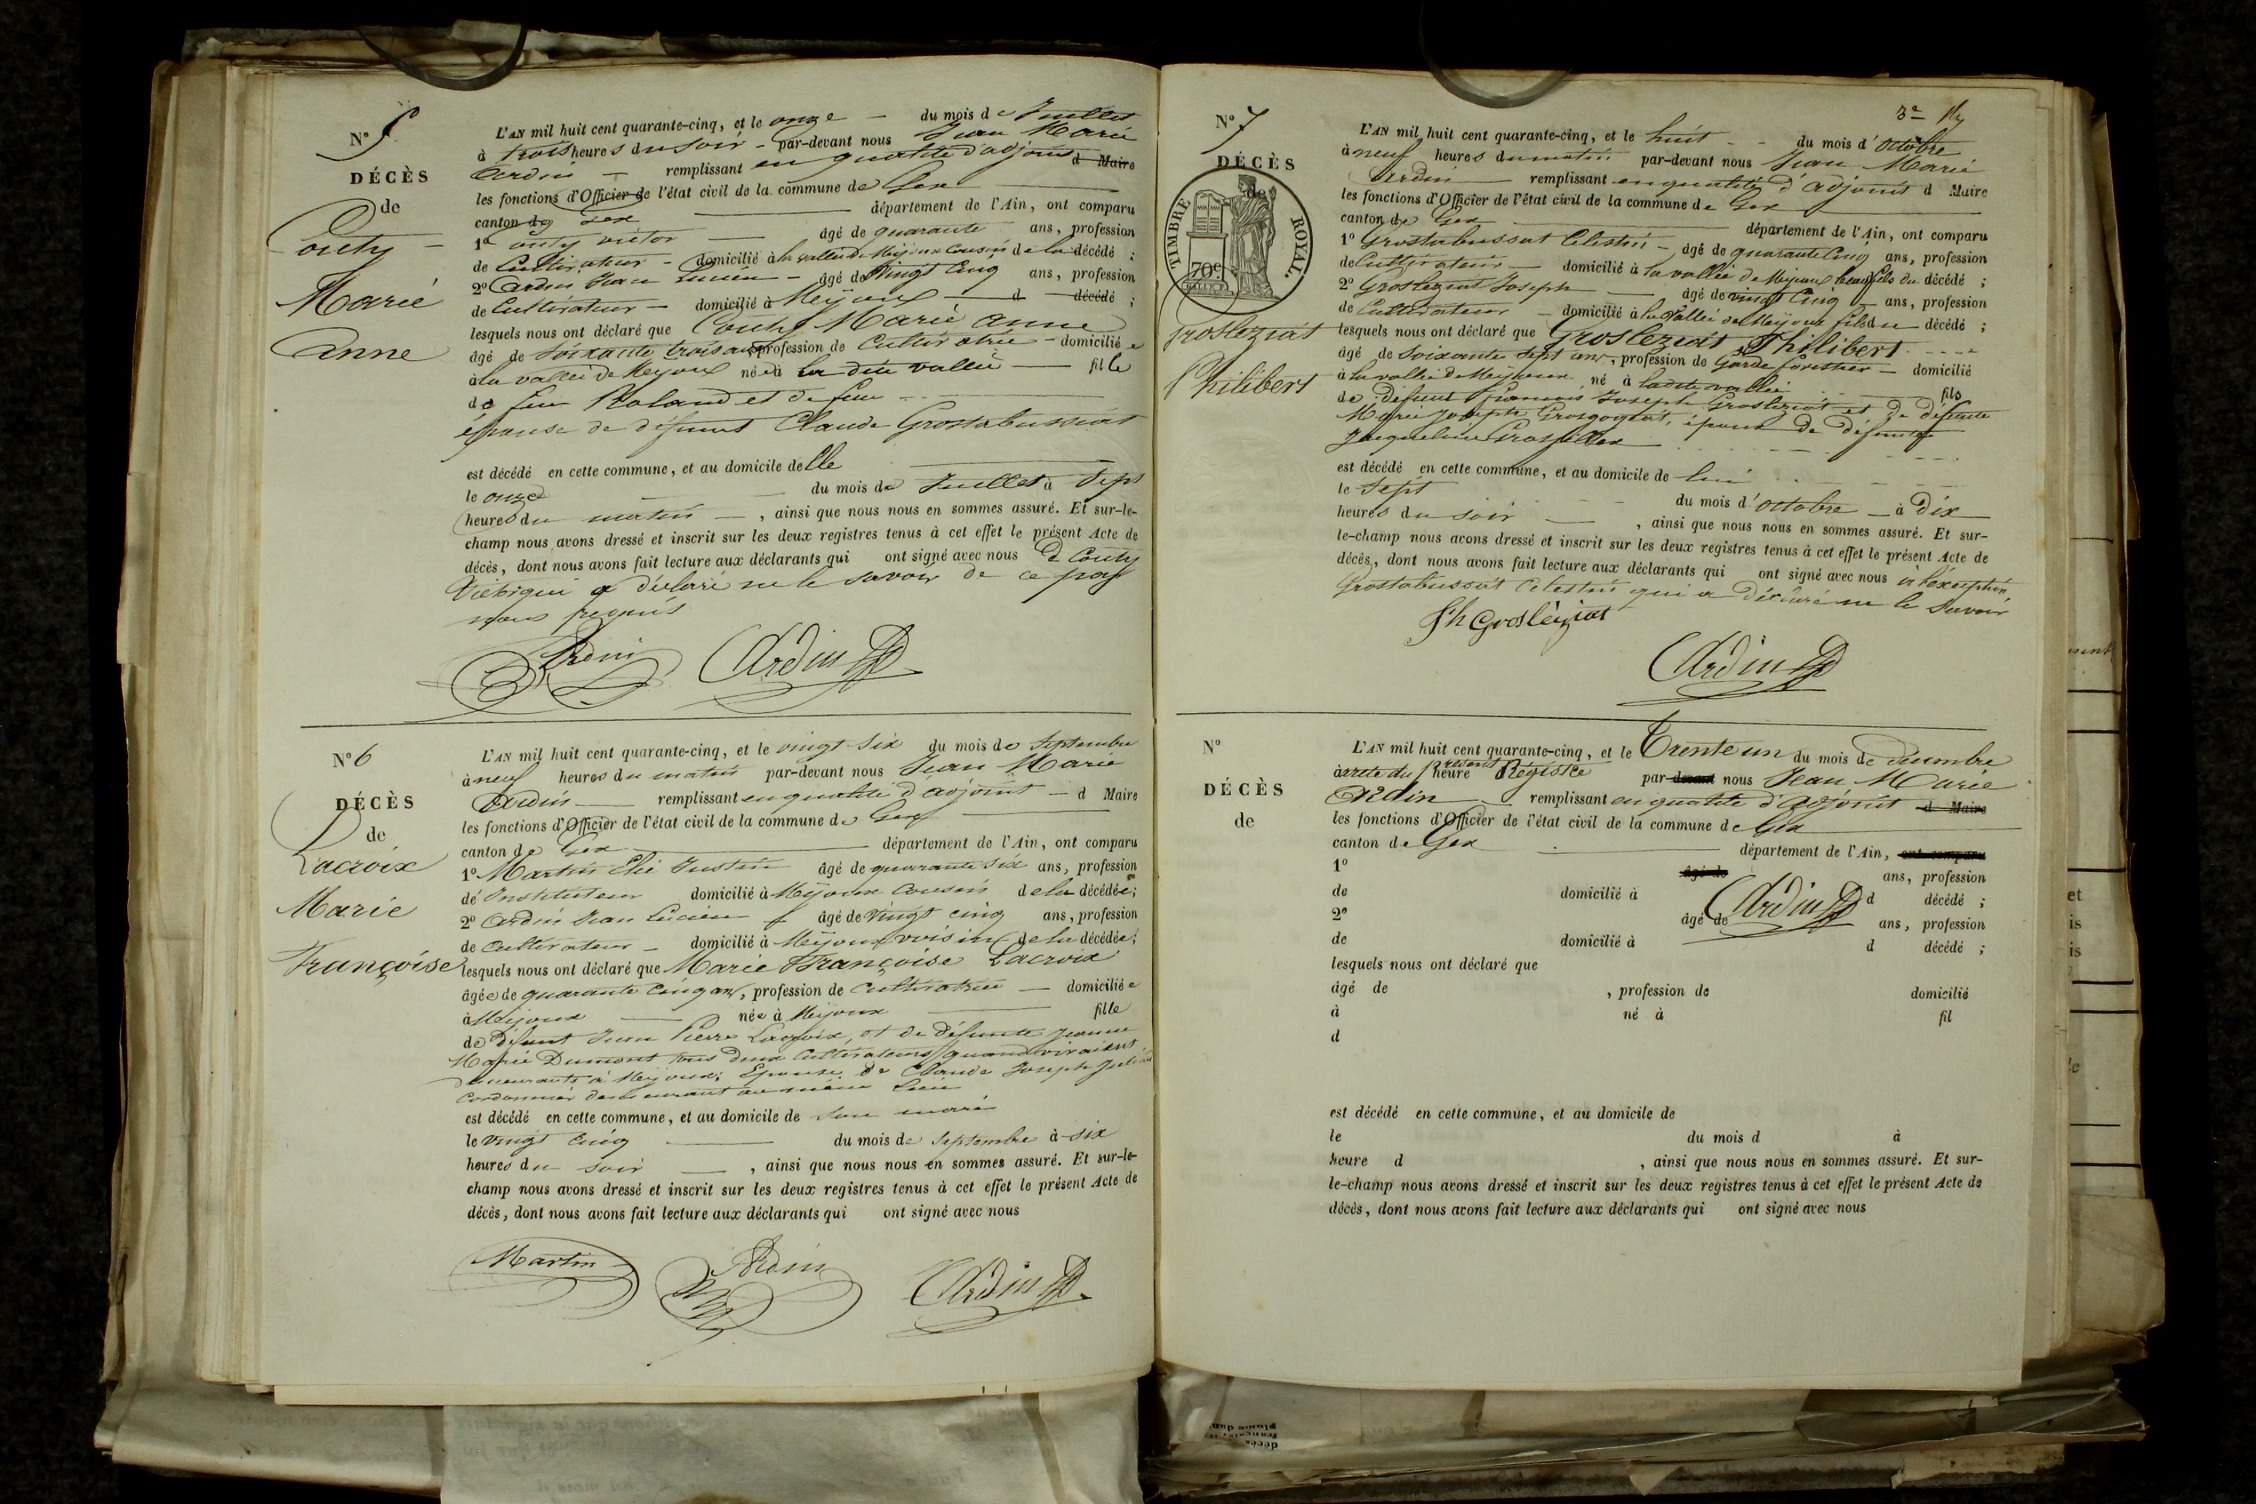 N° 5
DÉCÈS
de
Couty
Marie
Anne
L'AN mil huit cent quarante-cinq, et le onze du mois de Juillet
à trois heures du soir par-devant nous Jean Marie
Ardin remplissant en qualité d'adjoint d Maire
les fonctions d'Officier de l'état civil de la commune de Gex
canton de Gex département de l'Ain, ont comparu
1° Couty victor âgé de quarante ans, profession
de Cultivateur domicilié à la vallée de Mijoux Cousin de la décédé ;
2° Ardin Jean Lucien âgé de vingt cinq ans, profession
de Cultivateur domicilié à Mijoux d décédé ;
lesquels nous ont déclaré que Couty Marie Anne
âgé de Soixante trois ans profession de Cultivatrice domiciliée
à la vallée de Mijoux née à la dite vallée fille
de feu Roland et de feue
épouse de défunt Claude Grostabussiat
est décédé en cette commune, et au domicile d'elle
le onze du mois de Juillet à sept
heures du matin , ainsi que nous nous en sommes assuré. Et sur-le-
champ nous avons dressé et inscrit sur les deux registres tenus à cet effet le présent Acte de
décès, dont nous avons fait lecture aux déclarants qui ont signé avec nous Couty
qui a déclaré ne le savoir de ce par
nous requis
Ardin Ardin
N° 6
DÉCÈS
de
Lacroix
Marie
Françoise
L'AN mil huit cent quarante-cinq, et le vingt-six du mois de Septembre
à neuf heures du matin par-devant nous Jean Marie
Ardin remplissant en qualité d'adjoint d Maire
les fonctions d'Officier de l'état civil de la commune de Gex
canton de Gex département de l'Ain, ont comparu
1° Martin Elie Justin âgé de quarante six ans, profession
de Instituteur domicilié à Mijoux Cousin de la décédée ;
2° Ardin Jean Lucien âgé de vingt cinq ans, profession
de Cultivateur domicilié à Mijoux voisin de la décédée ;
lesquels nous ont déclaré que Marie Françoise Lacroix
âgée de quarante cinq ans, profession de Cultivatrice domiciliée
à Mijoux née à Mijoux fille
de Défunt Jean Pierre Lacroix, et de défunte Jeanne
Marie Dumont tous deux Cultivateurs quand vivaient
demeurants à Mijoux; Epouse de Claude Joseph
Cordonnier demeurant au même Lieu
est décédé en cette commune, et au domicile de son mari
le vingt cinq du mois de Septembre à six
heures du soir , ainsi que nous nous en sommes assuré. Et sur-le-
champ nous avons dressé et inscrit sur les deux registres tenus à cet effet le présent Acte de
décès, dont nous avons fait lecture aux déclarants qui ont signé avec nous
Martin Ardin Ardin
3e
N° 7
DÉCÈS
TIMBRE ROYAL.
70c
Grosleziat
Philibert
L'AN mil huit cent quarante-cinq, et le huit du mois d'octobre
à neuf heures du matin par-devant nous Jean Marie
Ardin remplissant en qualité d'adjoint d Maire
les fonctions d'Officier de l'état civil de la commune de Gex
canton de Gex département de l'Ain, ont comparu
1° Grostabussiat Célestin âgé de quarante cinq ans, profession
de Cultivateur domicilié à la vallée de Mijoux beaufils du décédé ;
2° Grosleziat Joseph âgé de vingt cinq ans, profession
de Cultivateur domicilié à la vallée de Mijoux fils du décédé ;
lesquels nous ont déclaré que Grosleziat Philibert
âgé de soixante sept ans, profession de Garde forestier domicilié
à la vallée de Mijoux né à ladite vallée fils
de défunt françois Joseph Grosleziat et de défunte
Marie Joseph Grosgogeat, époux de défunte
Jacqueline
est décédé en cette commune, et au domicile de lui
le sept du mois d'octobre à dix
heures du soir , ainsi que nous nous en sommes assuré. Et sur-
le-champ nous avons dressé et inscrit sur les deux registres tenus à cet effet le présent Acte de
décès, dont nous avons fait lecture aux déclarants qui ont signé avec nous à l'exception
Grostabussiat Célestin qui a déclaré ne le savoir
Jh Grosléziat
Ardin
N°
DÉCÈS
de
L'AN mil huit cent quarante-cinq, et le Trente un du mois de décembre
arrêté du présent heure Registre par devant nous Jean Marie
Ardin remplissant en qualité d'adjoint d Maire
les fonctions d'Officier de l'état civil de la commune de Gex
canton de Gex département de l'Ain, ont comparu
1° âgé de ans, profession
de domicilié à d décédé ;
Ardin
2° âgé de ans, profession
de domicilié à d décédé ;
lesquels nous ont déclaré que
âgé de , profession de domicilié
à né à fil
d
est décédé en cette commune, et au domicile de
le du mois d à
heure d , ainsi que nous nous en sommes assuré. Et sur-
le-champ nous avons dressé et inscrit sur les deux registres tenus à cet effet le présent Acte de
décès, dont nous avons fait lecture aux déclarants qui ont signé avec nous
et
is
is